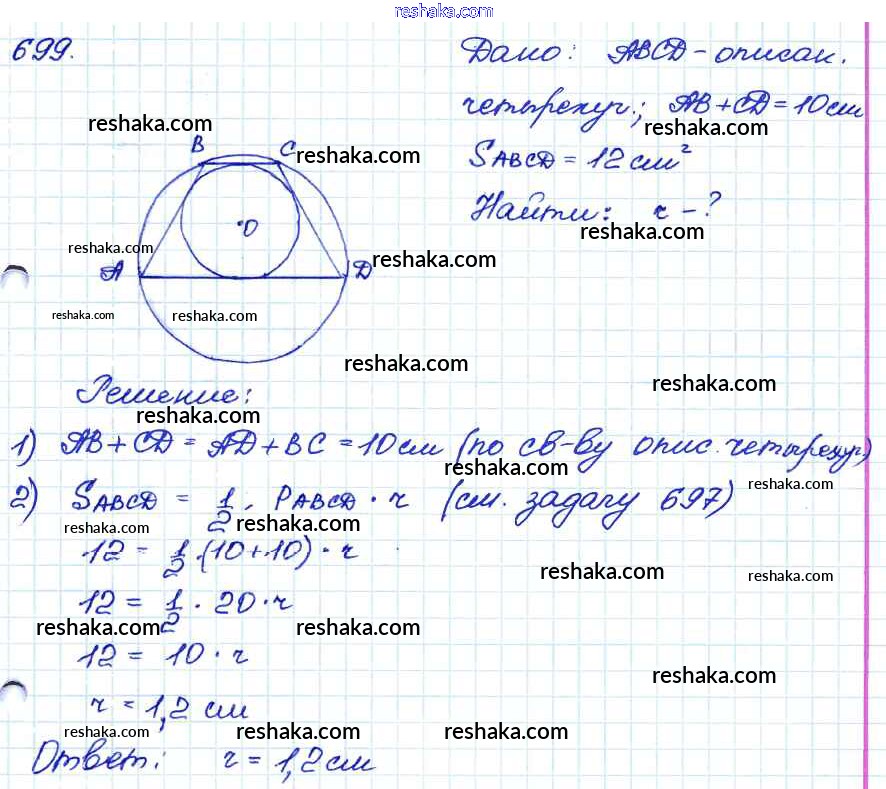 reshaka.com
699.
Дано: ABCD - описан.
четырехуг.; AB + CD = 10 см
reshaka.com
reshaka.com
B C reshaka.com
S ABCD = 12 см²
Найти: r - ?
reshaka.com
O
reshaka.com
reshaka.com
A D
reshaka.com
reshaka.com
reshaka.com
Решение:
reshaka.com
reshaka.com
1) AB + CD = AD + BC = 10 см (по св-ву опис. четырехуг.)
reshaka.com
reshaka.com
2) S ABCD = 1/2 · P ABCD · r (см. задачу 697)
reshaka.com
reshaka.com
12 = 1/2 · (10 + 10) · r
reshaka.com
reshaka.com
12 = 1/2 · 20 · r
reshaka.com
reshaka.com
12 = 10 · r
reshaka.com
r = 1,2 см
reshaka.com
reshaka.com
reshaka.com
Ответ: r = 1,2 см